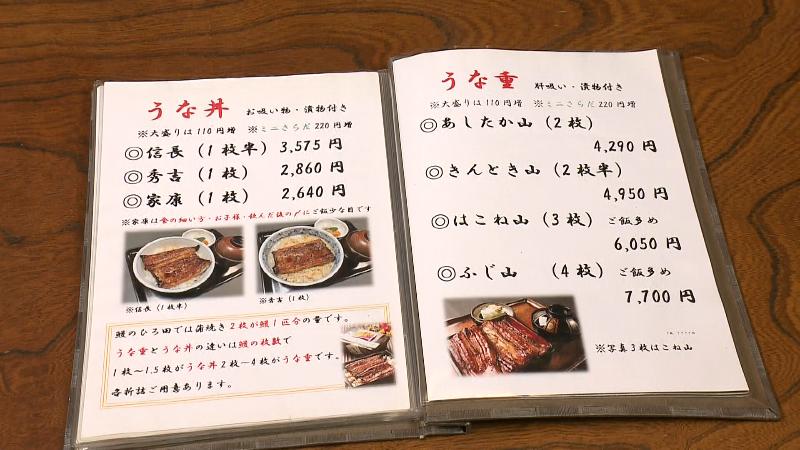 うな丼 お吸い物・漬物付き
※大盛りは110円増 ※ミニさらだ220円増
◎信長(1枚半) 3,575円
◎秀吉(1枚) 2,860円
◎家康(1枚) 2,640円
※家康は食の細い方・お子様・飲んだ後の〆にご飯少な目です
※信長(1枚半)
※秀吉(1枚)
鰻のひろ田では蒲焼き2枚が鰻1匹分の量です。
うな重とうな丼の違いは鰻の枚数で
1枚〜1.5枚がうな丼2枚〜4枚がうな重です。
各折詰ご用意あります。
うな重 肝吸い・漬物付き
※大盛りは110円増 ※ミニさらだ220円増
◎あしたか山(2枚)
4,290円
◎きんとき山(2枚半)
4,950円
◎はこね山(3枚) ご飯多め
6,050円
◎ふじ山 (4枚) ご飯多め
7,700円
※写真3枚はこね山